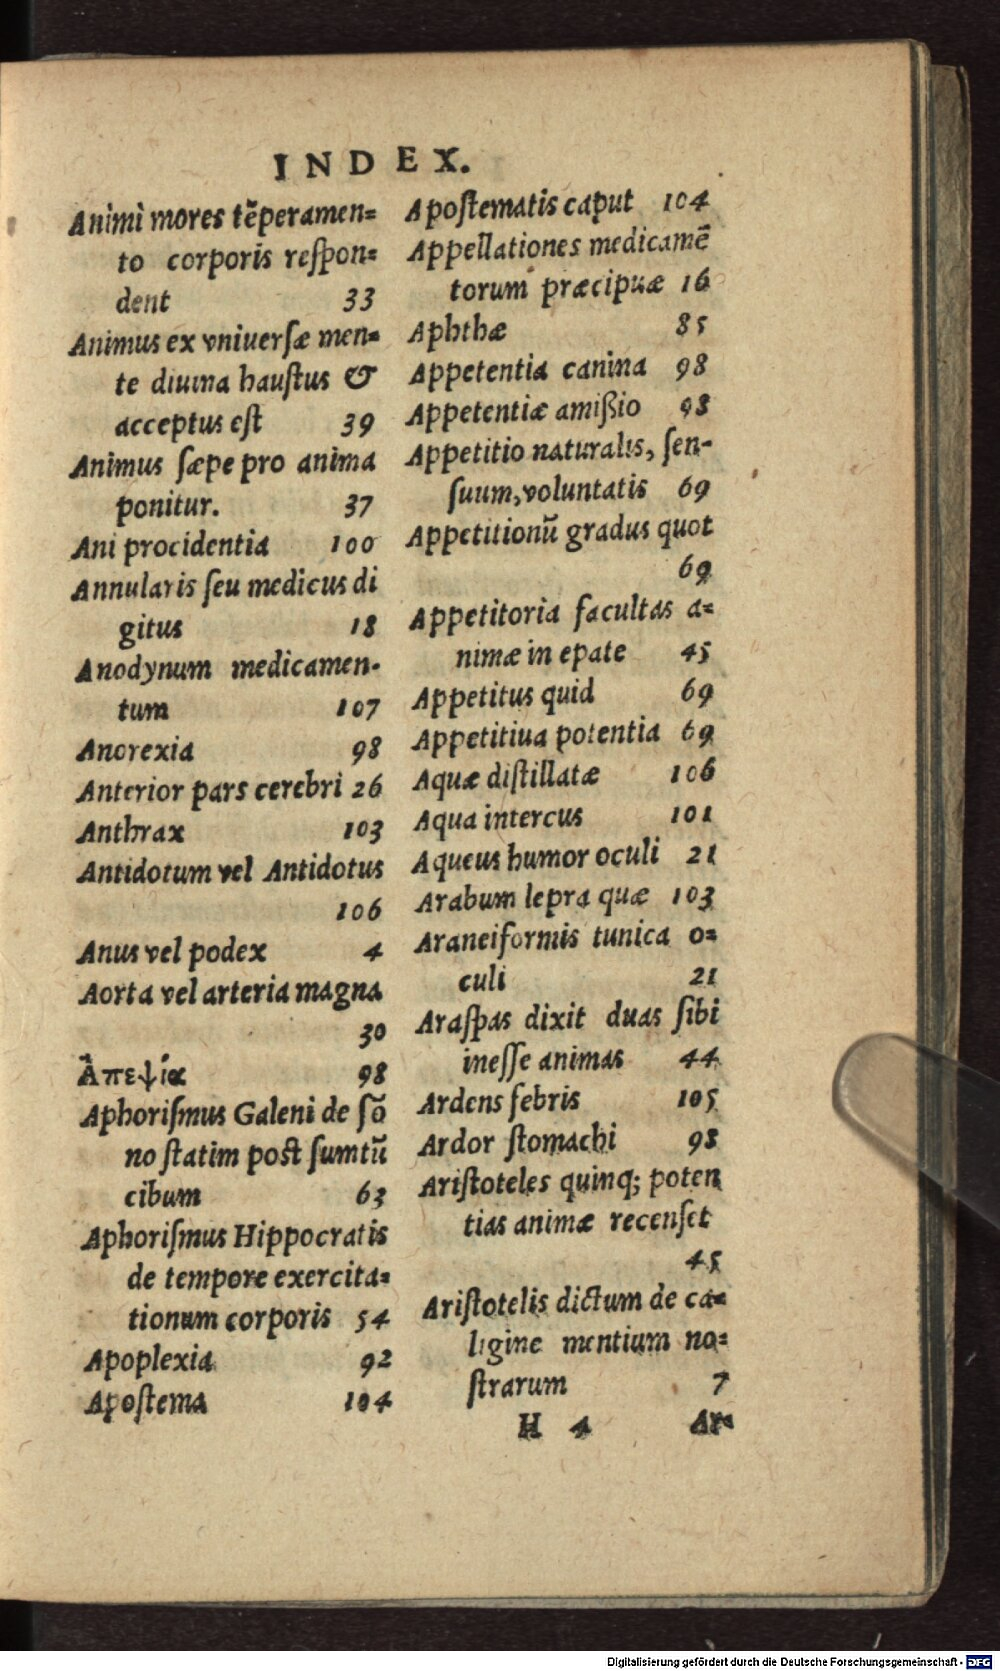 INDEX.
Animi mores tēperamen=
to corporis reſpon=
dent 33
Animus ex vniuerſæ men=
te diuina hauſtus &
acceptus eſt 39
Animus ſæpe pro anima
ponitur. 37
Ani procidentia 100
Annularis ſeu medicus di
gitus 18
Anodynum medicamen-
tum 107
Anorexia 98
Anterior pars cerebri 26
Anthrax 103
Antidotum vel Antidotus
106
Anus vel podex 4
Aorta vel arteria magna
30
Ἀπεψία 98
Aphoriſmus Galeni de ſō
no ſtatim poſt ſumtū
cibum 63
Aphoriſmus Hippocratis
de tempore exercita=
tionum corporis 54
Apoplexia 92
Apoſtema 104
Apoſtematis caput 104
Appellationes medicamē
torum præcipuæ 16
Aphthæ 85
Appetentia canina 98
Appetentiæ amißio 98
Appetitio naturalis, ſen-
ſuum, voluntatis 69
Appetitionū gradus quot
69
Appetitoria facultas a=
nimæ in epate 45
Appetitus quid 69
Appetitiua potentia 69
Aquæ diſtillatæ 106
Aqua intercus 101
Aqueus humor oculi 21
Arabum lepra quæ 103
Araneiformis tunica o=
culi 21
Araſpas dixit duas ſibi
ineſſe animas 44
Ardens febris 105
Ardor ſtomachi 98
Ariſtoteles quinq; poten
tias animæ recenſet
45
Ariſtotelis dictum de ca=
ligine mentium no=
ſtrarum 7
H 4 Ar=
Digitalisierung gefördert durch die Deutsche Forschungsgemeinschaft - DFG